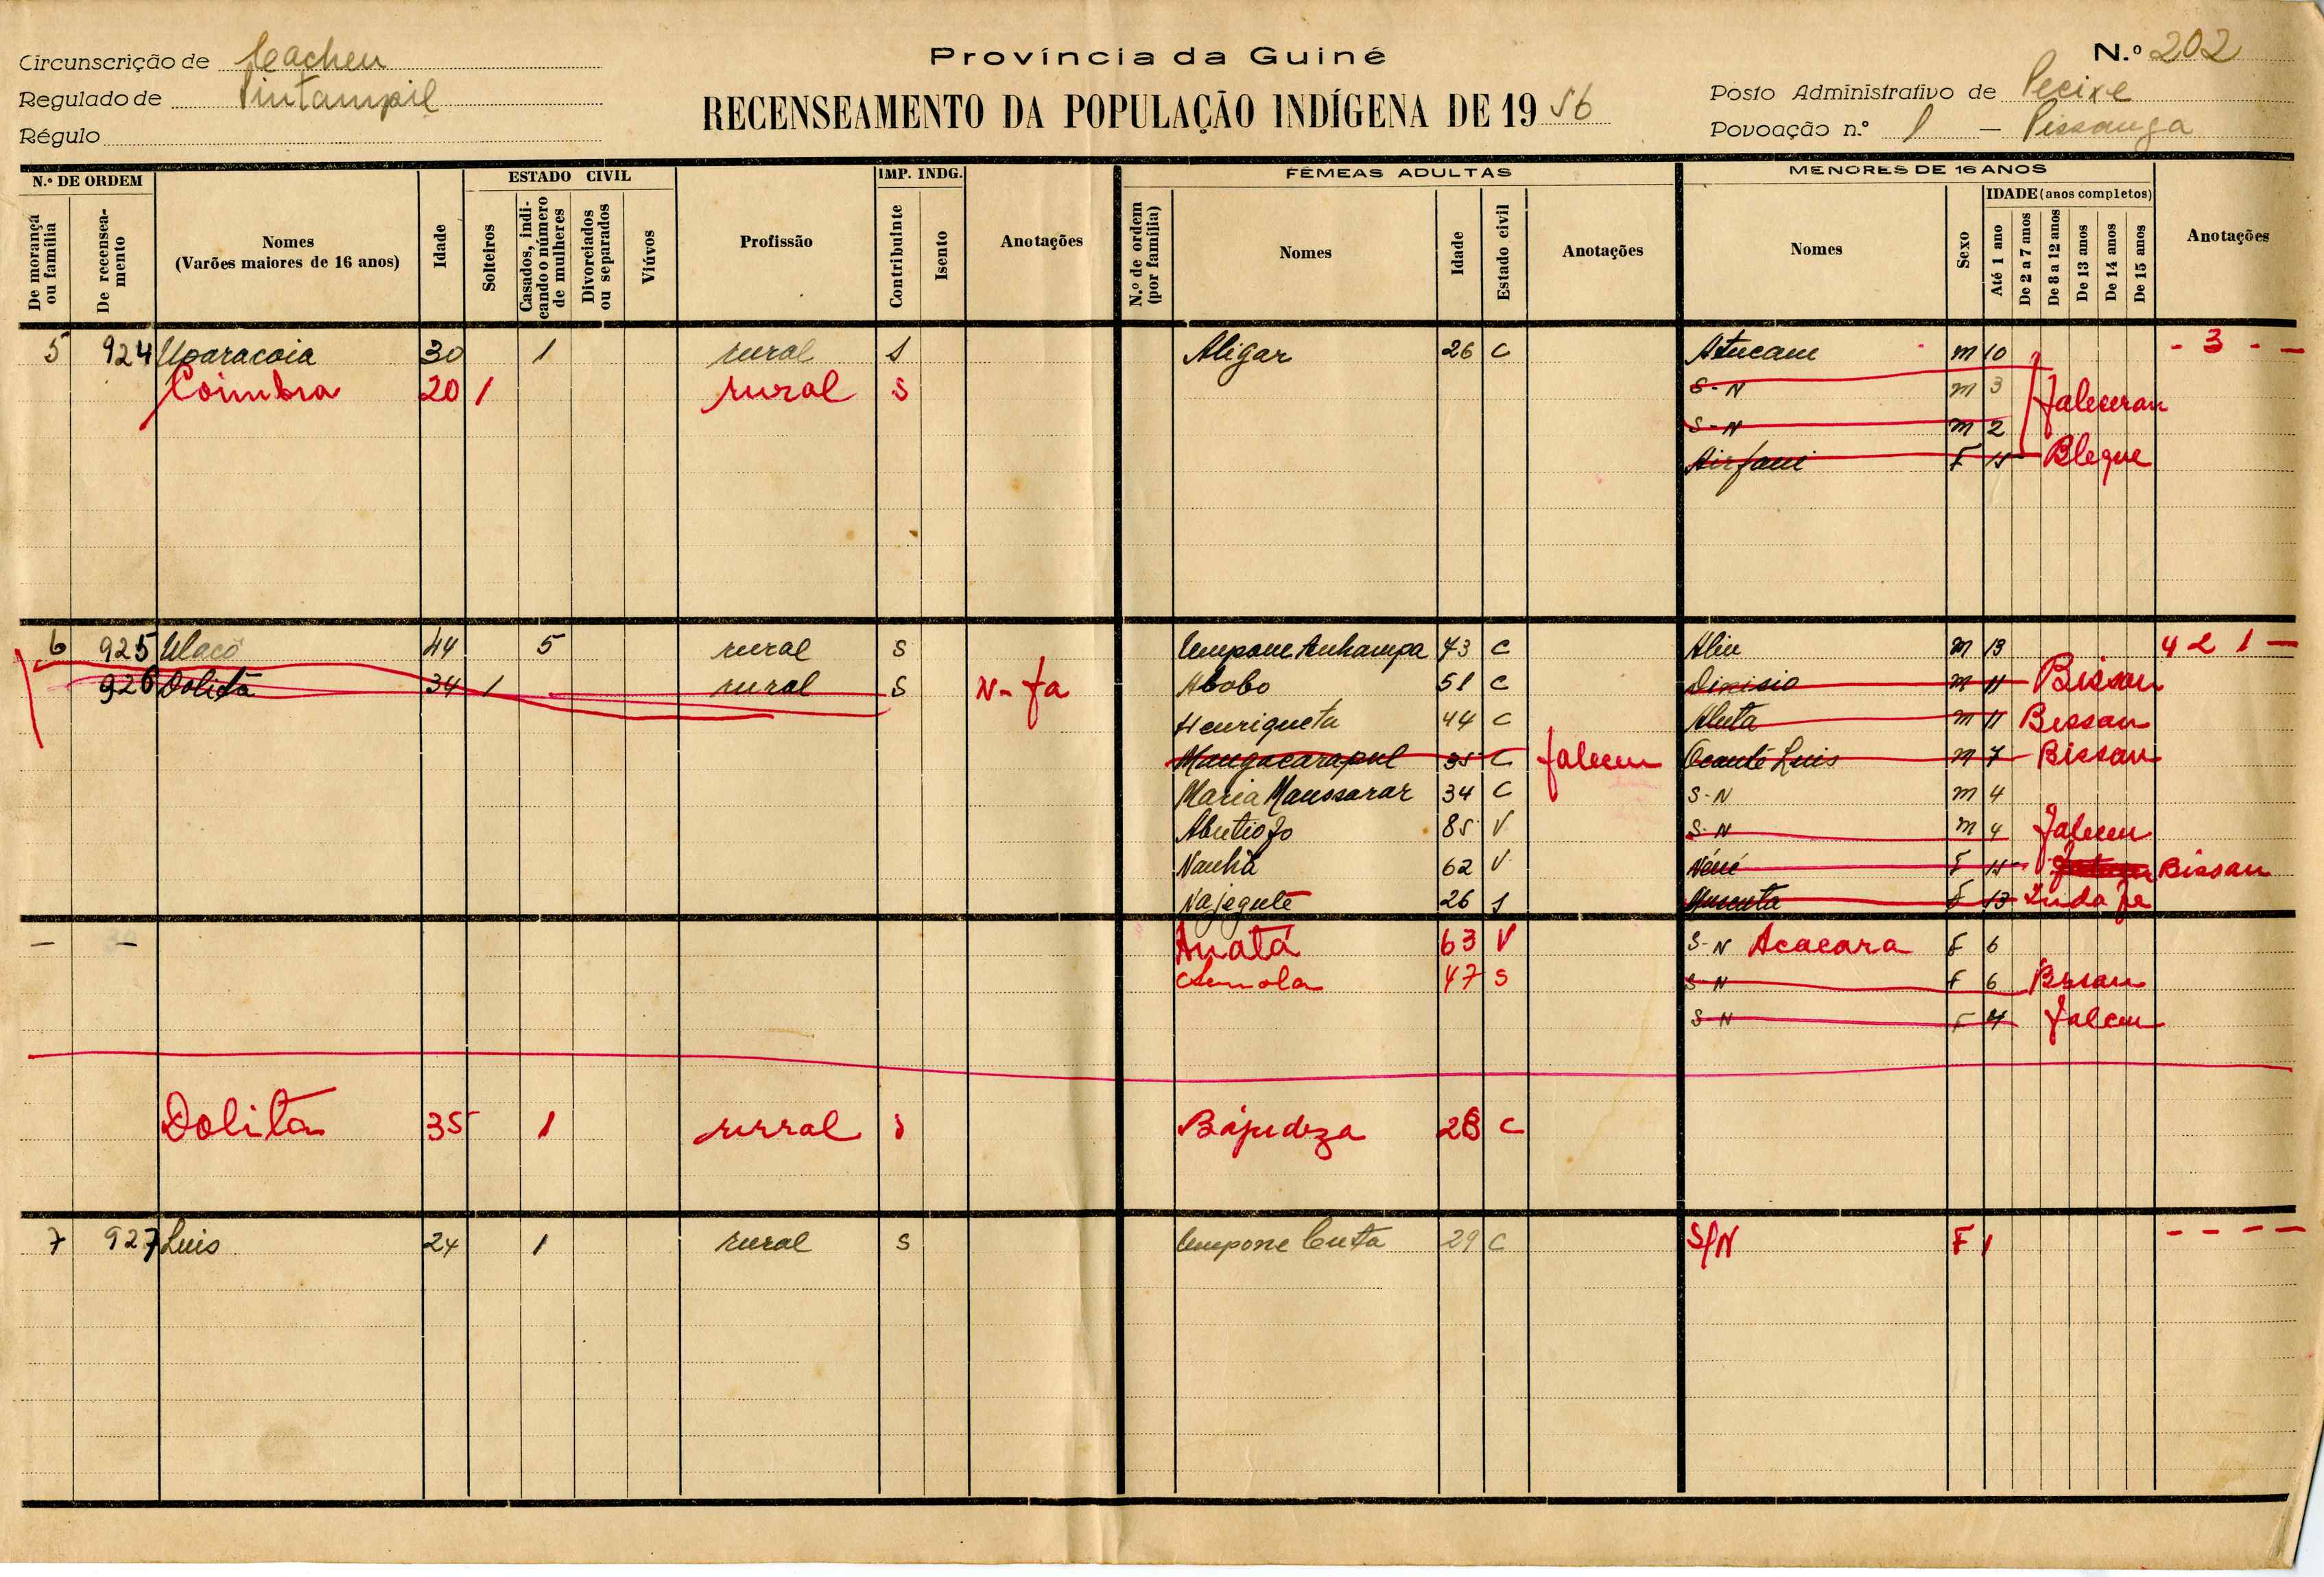 Província da Guiné
N.º 202
Circunscrição de Cacheu
Regulado de Pintampil
Régulo
RECENSEAMENTO DA POPULAÇÃO INDÍGENA DE 19 56
Posto Administrativo de Pecixe
Povoação n.º 1 — Pissanga
N.º DE ORDEM
De morança ou família
De recenseamento
Nomes
(Varões maiores de 16 anos)
Idade
ESTADO CIVIL
Solteiros
Casados, indicando o número de mulheres
Divorciados ou separados
Viúvos
Profissão
IMP. INDG.
Contribuinte
Isento
Anotações
FÊMEAS ADULTAS
N.º de ordem (por família)
Nomes
Idade
Estado civil
Anotações
MENORES DE 16 ANOS
Nomes
Sexo
IDADE (anos completos)
Até 1 ano
De 2 a 7 anos
De 8 a 12 anos
De 13 anos
De 14 anos
De 15 anos
Anotações
5 924 Uparacoia 30 1 rural s Aligar 26 C Atucam m 10 - 3 - -
Coimbra 20 1 rural s S-N m 3 faleceram
S-N m 2
F 15 Blegue
6 925 Ulacó 44 5 rural s Umpone Anhampa 73 C Aliu m 13 4 2 1 —
926 Dolita 34 1 rural s N-fa Abobo 51 C Dinisio m 11 Bissau
Henriqueta 44 C Aluta m 11 Bissau
Mangacarapul 35 C faleceu Ocanté Luis m 7 Bissau
Maria Maussarar 34 C S-N m 4
Abutiofo 85 V S-N m 4 faleceu
Nanhá 62 V Néné F 15 Bissau
Najegute 26 s F 13
— — Anatá 63 V S-N Acacara F 6
47 s S-N F 6 Bissau
S-N F 4 faleceu
Dolita 35 1 rural s Bájudeza 28 C
7 927 Luis 24 1 rural s Umpone Cuta 29 C S/N F 1 - - - -